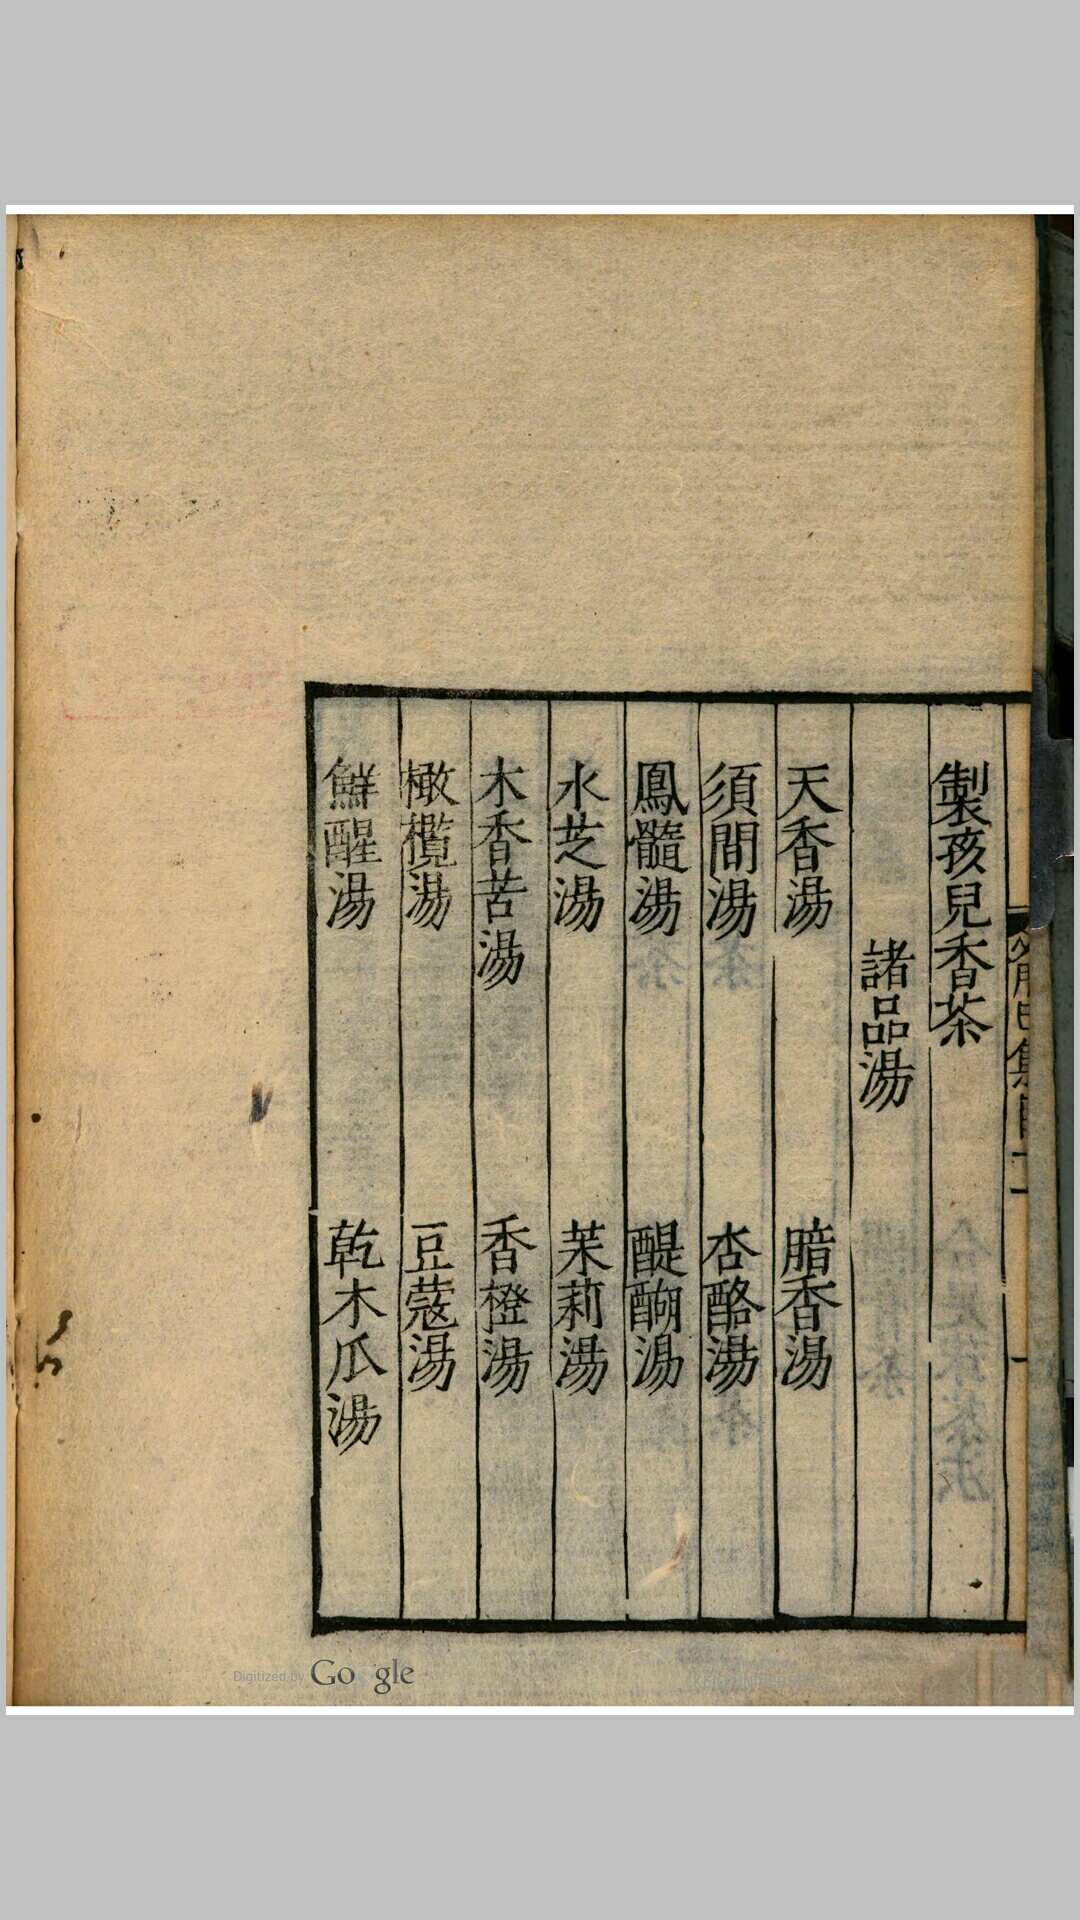 製孩兒香茶
諸品湯
天香湯 暗香湯
須問湯 杏酪湯
鳳髓湯 醍醐湯
水芝湯 茉莉湯
木香苦湯 香橙湯
橄欖湯 豆蔻湯
鮮醒湯 乾木瓜湯
Digitized by Google